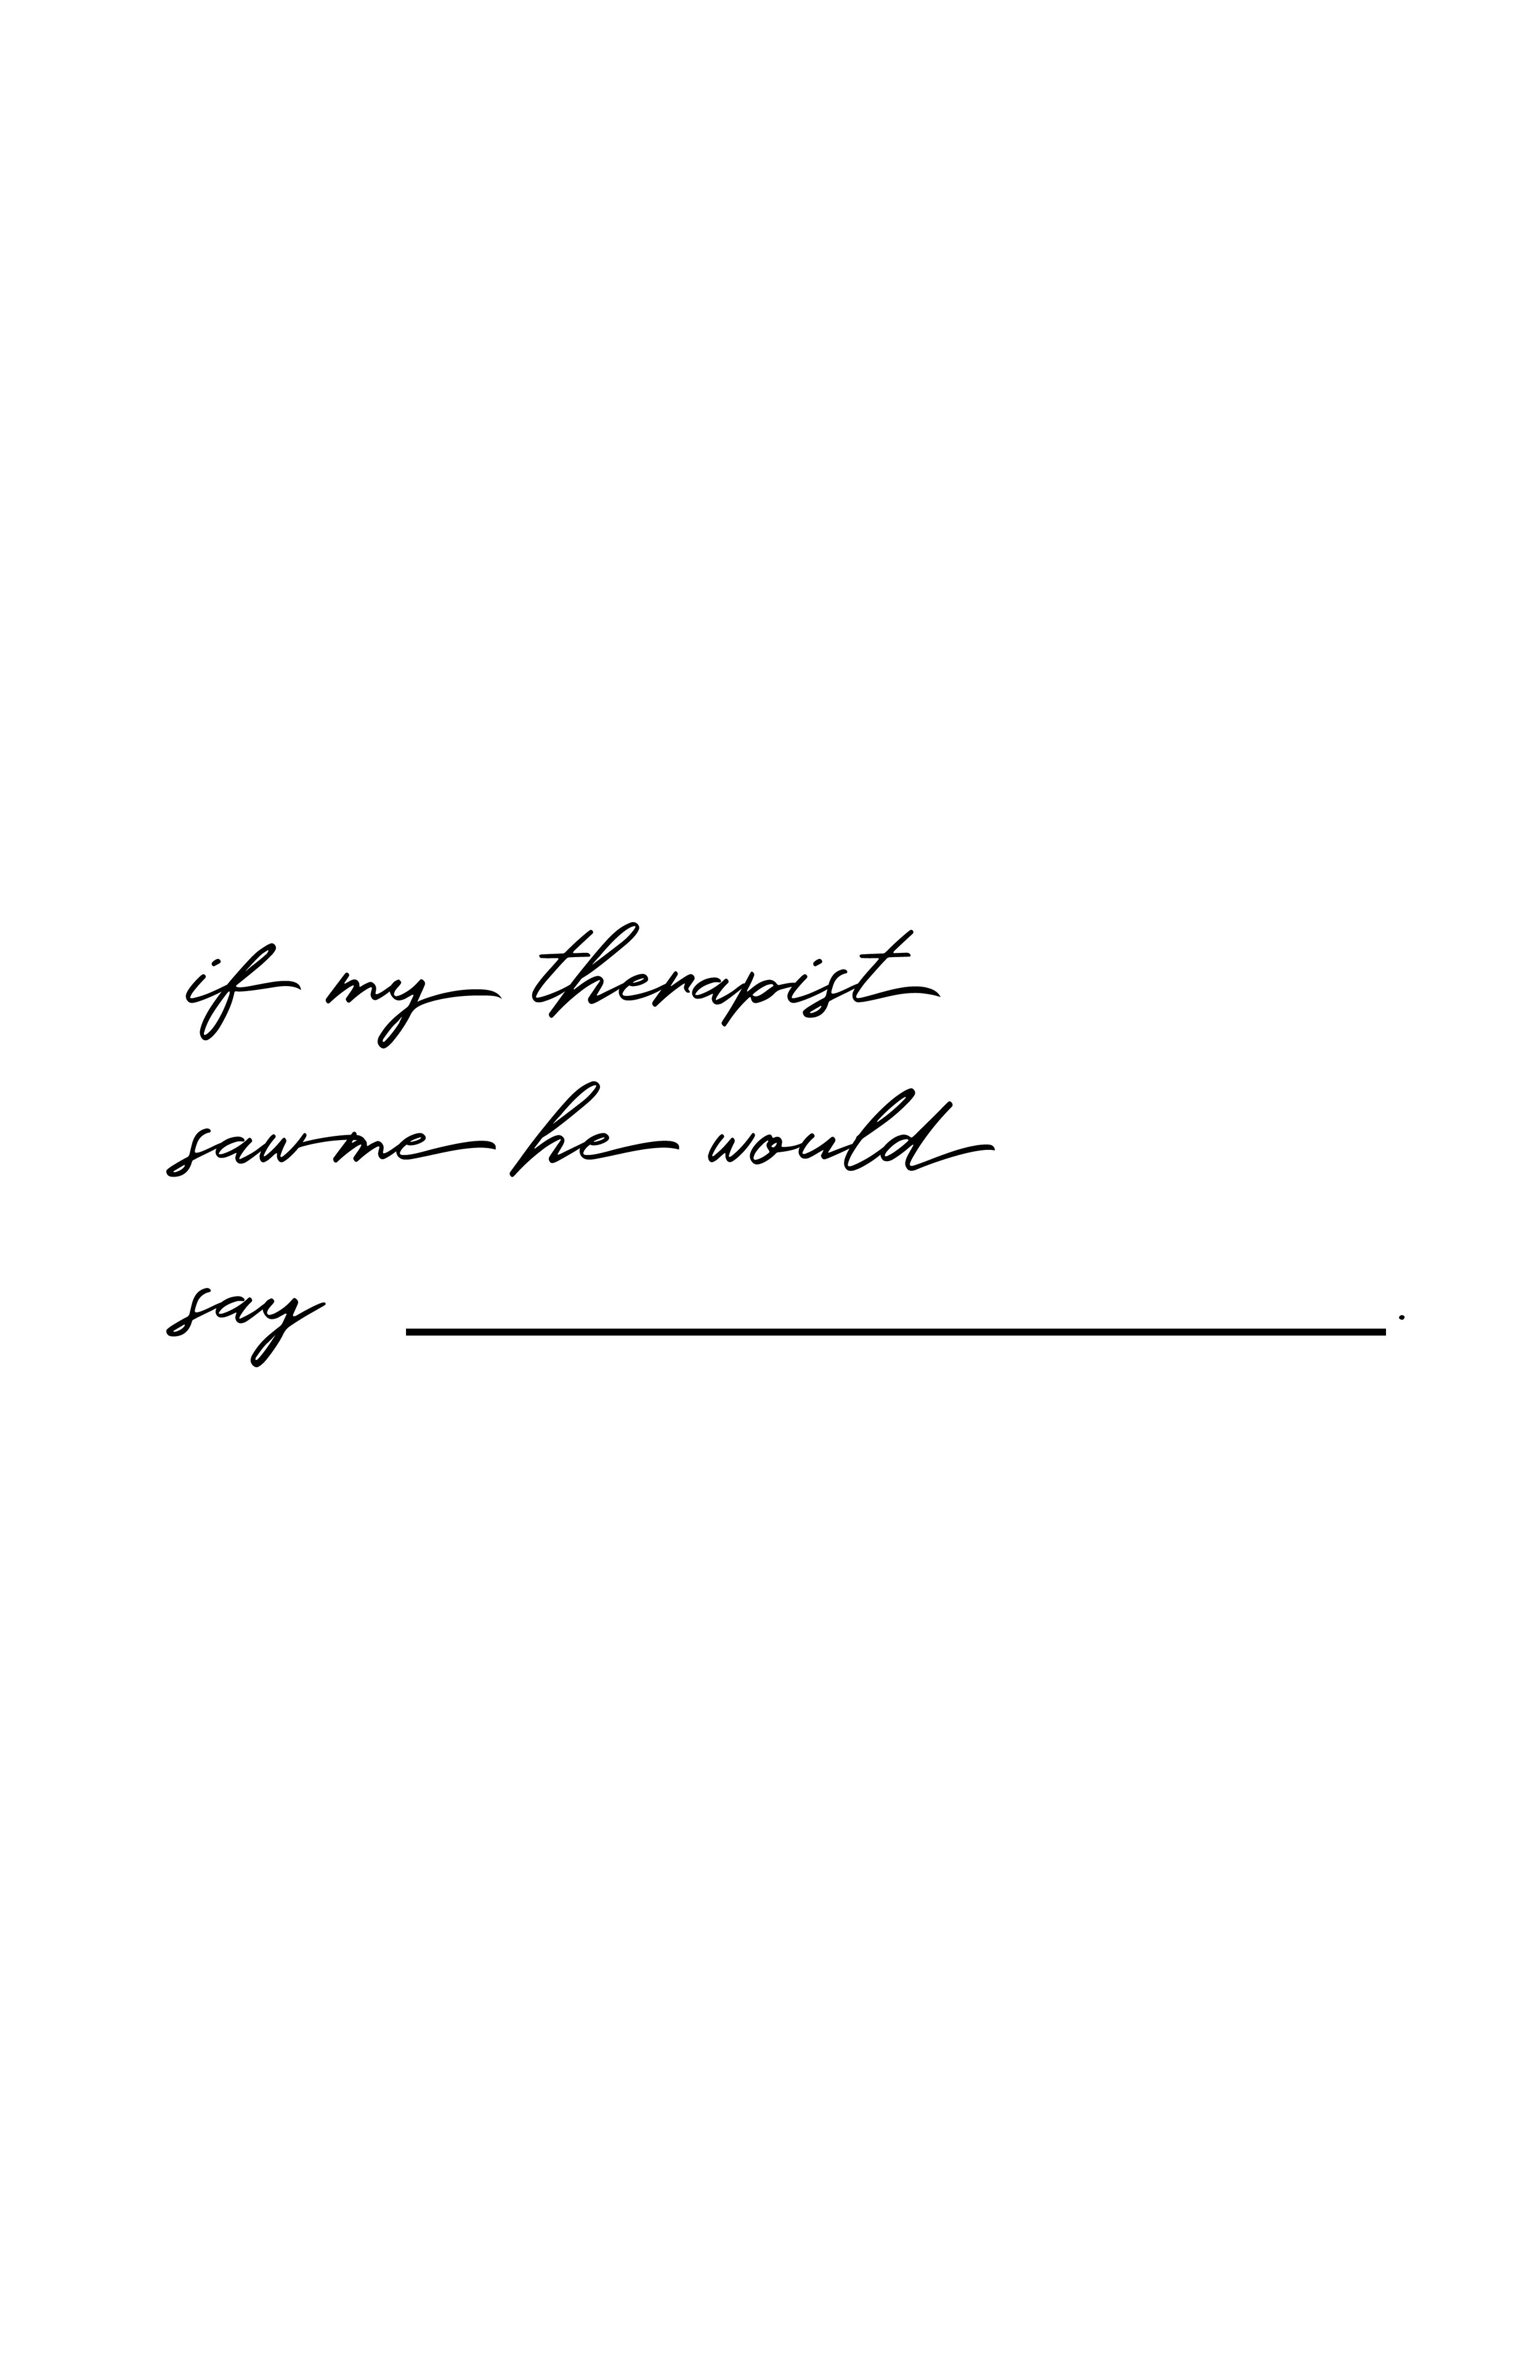 if my therapist
saw me he would
say ____________________.